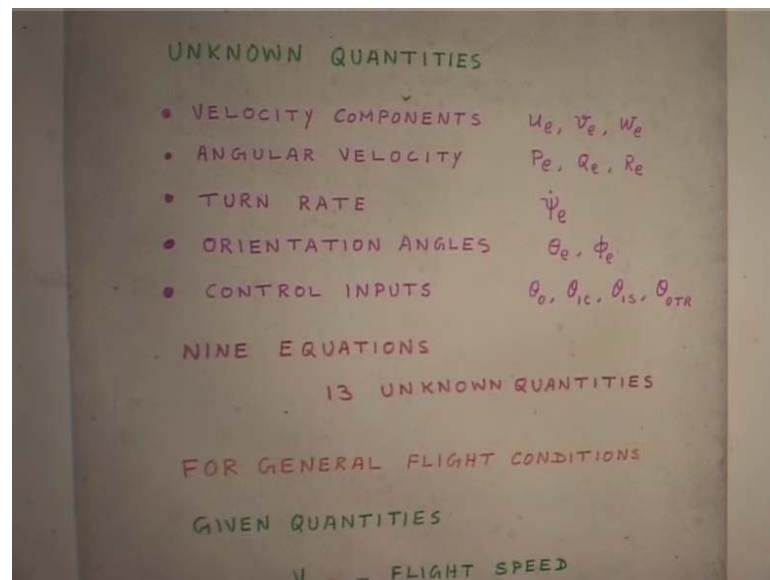 UNKNOWN QUANTITIES
• VELOCITY COMPONENTS uₑ, vₑ, wₑ
• ANGULAR VELOCITY Pₑ, Qₑ, Rₑ
• TURN RATE ψ̇ₑ
• ORIENTATION ANGLES θₑ, ϕₑ
• CONTROL INPUTS θ₀, θ₁C, θ₁S, θ₀TR
NINE EQUATIONS
13 UNKNOWN QUANTITIES
FOR GENERAL FLIGHT CONDITIONS
GIVEN QUANTITIES
V – FLIGHT SPEED